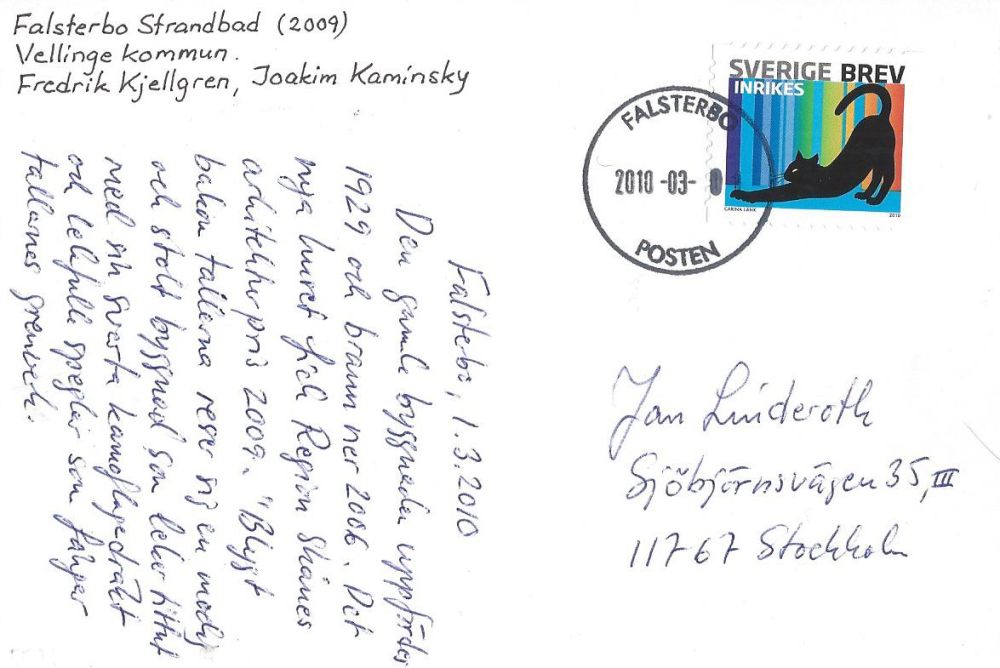 Falsterbo Strandbad (2009)
Vellinge kommun.
Fredrik Kjellgren, Joakim Kaminsky
Falsterbo, 1.3.2010
Den gamla byggnaden uppfördes
1929 och brann ner 2006. Det
nya huset fick Region Skånes
arkitekturpris 2009. "Blygt
bakom tallarna reser sig en modig
och stolt byggnad som leker tittut
med sin svarta kamouflagedräkt
och lekfulla speglar som fångar
tallarnas grenverk.
SVERIGE BREV
INRIKES
CARINA LÄNK
2010
FALSTERBO
2010-03-
POSTEN
Jan Linderoth
Sjöbjörnsvägen 35, III
117 67 Stockholm